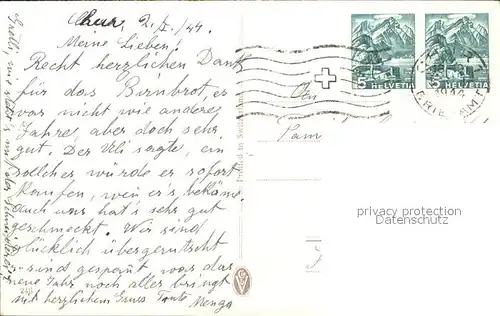 Chur, 2. I. /44.
Meine Lieben!
Recht herzlichen Dank
für das Birnbrot, es
war nicht wie andere
Jahre, aber doch sehr
gut. Der Ueli sagte, ein
solcher würde er sofort
kaufen, wen er's bekäme.
Auch uns hat's sehr gut
geschmeckt. Wir sind
glücklich übergerutscht
sind gespannt, was das
neue Jahr noch alles bringt
Mit herzlichem Gruss Tante Menga
243
Printed in Switzerland
5 HELVETIA
5 HELVETIA
privacy protection
Datenschutz